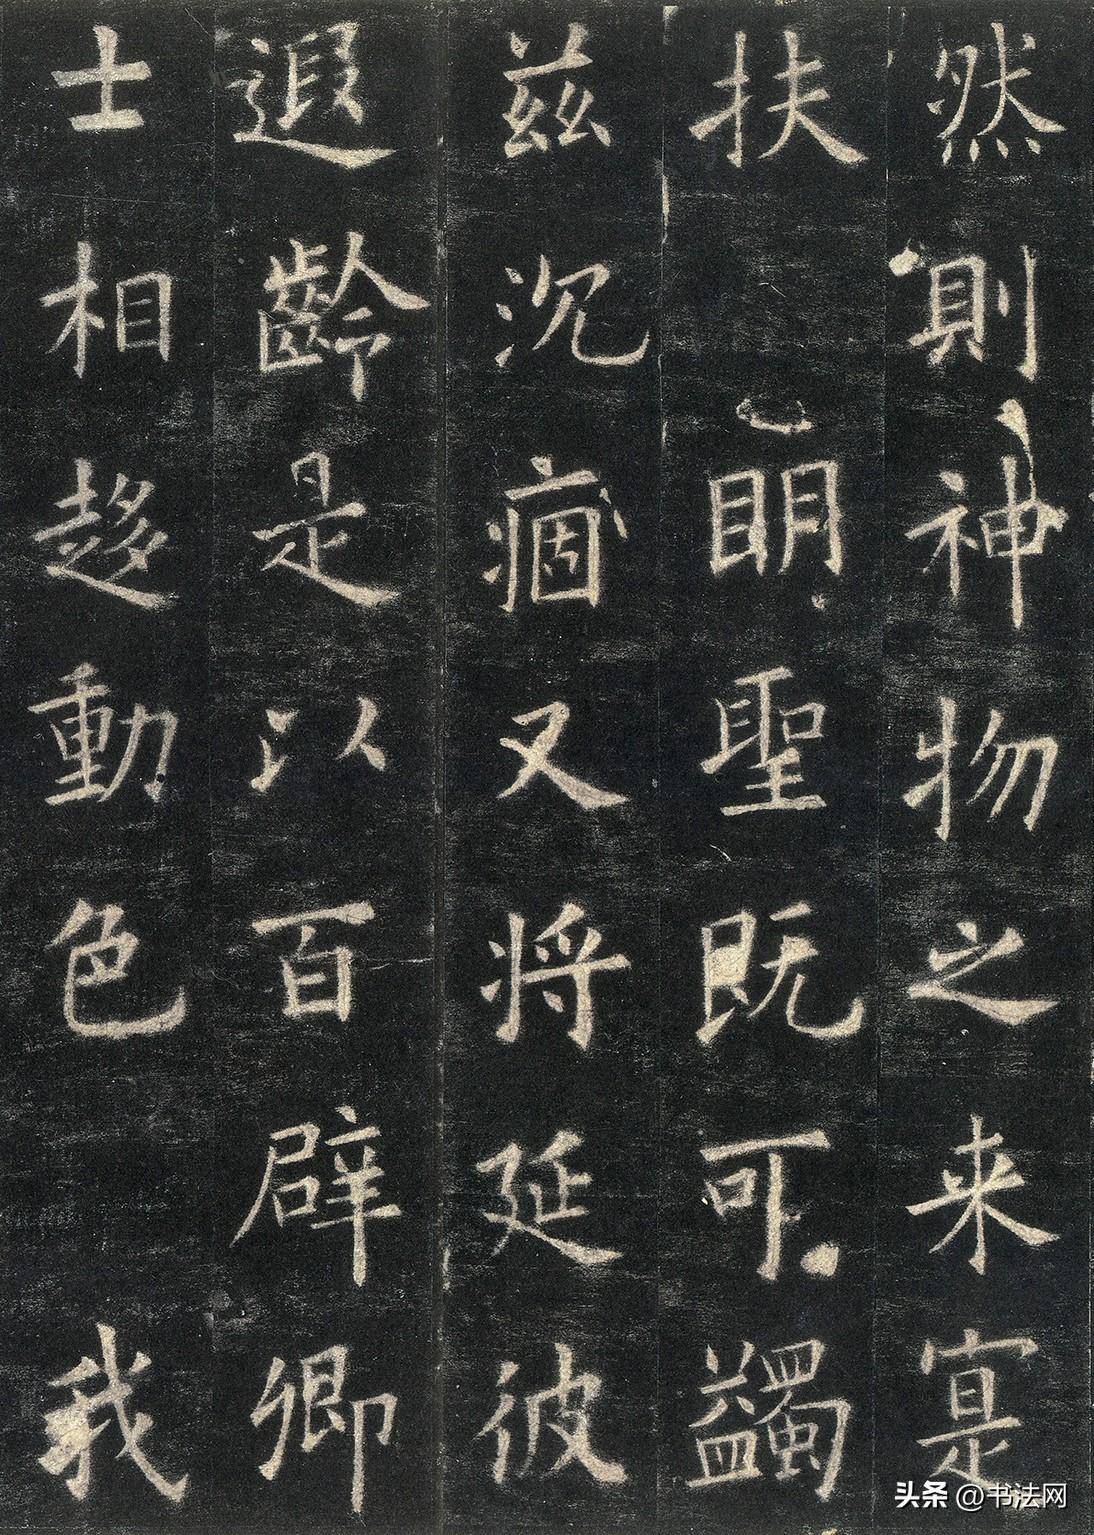 然則神物之来寔
扶明聖既可蠲
茲沉痼又将延彼
遐齡是以百辟卿
士相趍動色我
头条 @书法网